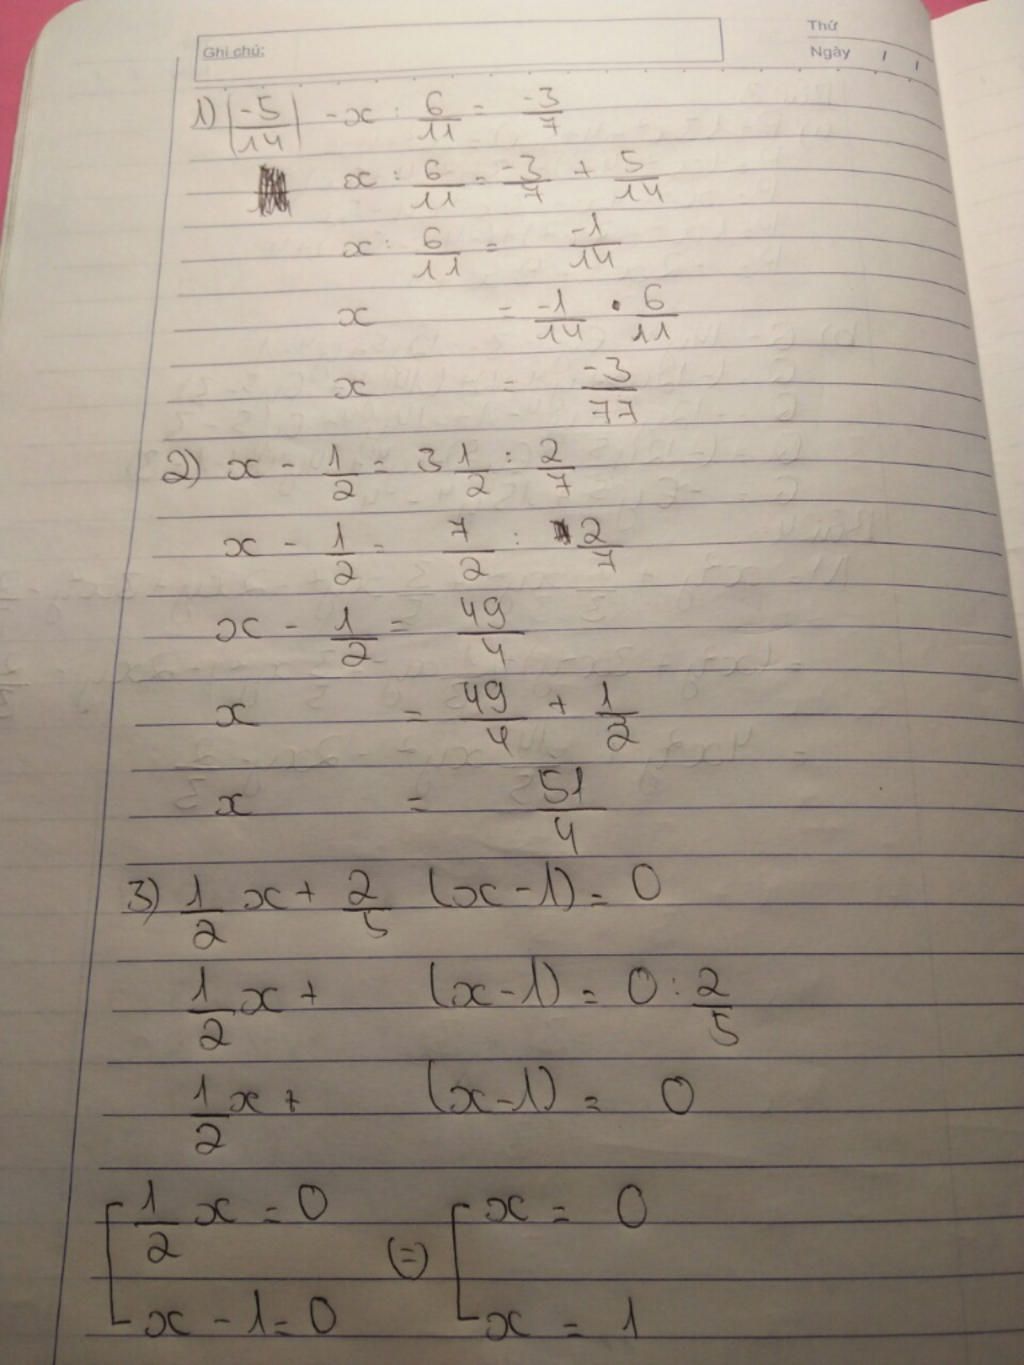 Ghi chú:
Thứ
Ngày / /
1) |-5/14| - x : 6/11 = -3/7
x : 6/11 = -3/7 + 5/14
x : 6/11 = -1/14
x = -1/14 . 6/11
x = -3/77
2) x - 1/2 = 3 1/2 : 2/7
x - 1/2 = 7/2 : 2/7
x - 1/2 = 49/4
x = 49/4 + 1/2
x = 51/4
3) 1/2 x + 2/5 (x - 1) = 0
1/2 x + (x - 1) = 0 : 2/5
1/2 x + (x - 1) = 0
[ 1/2 x = 0 (=) [ x = 0
x - 1 = 0 x = 1